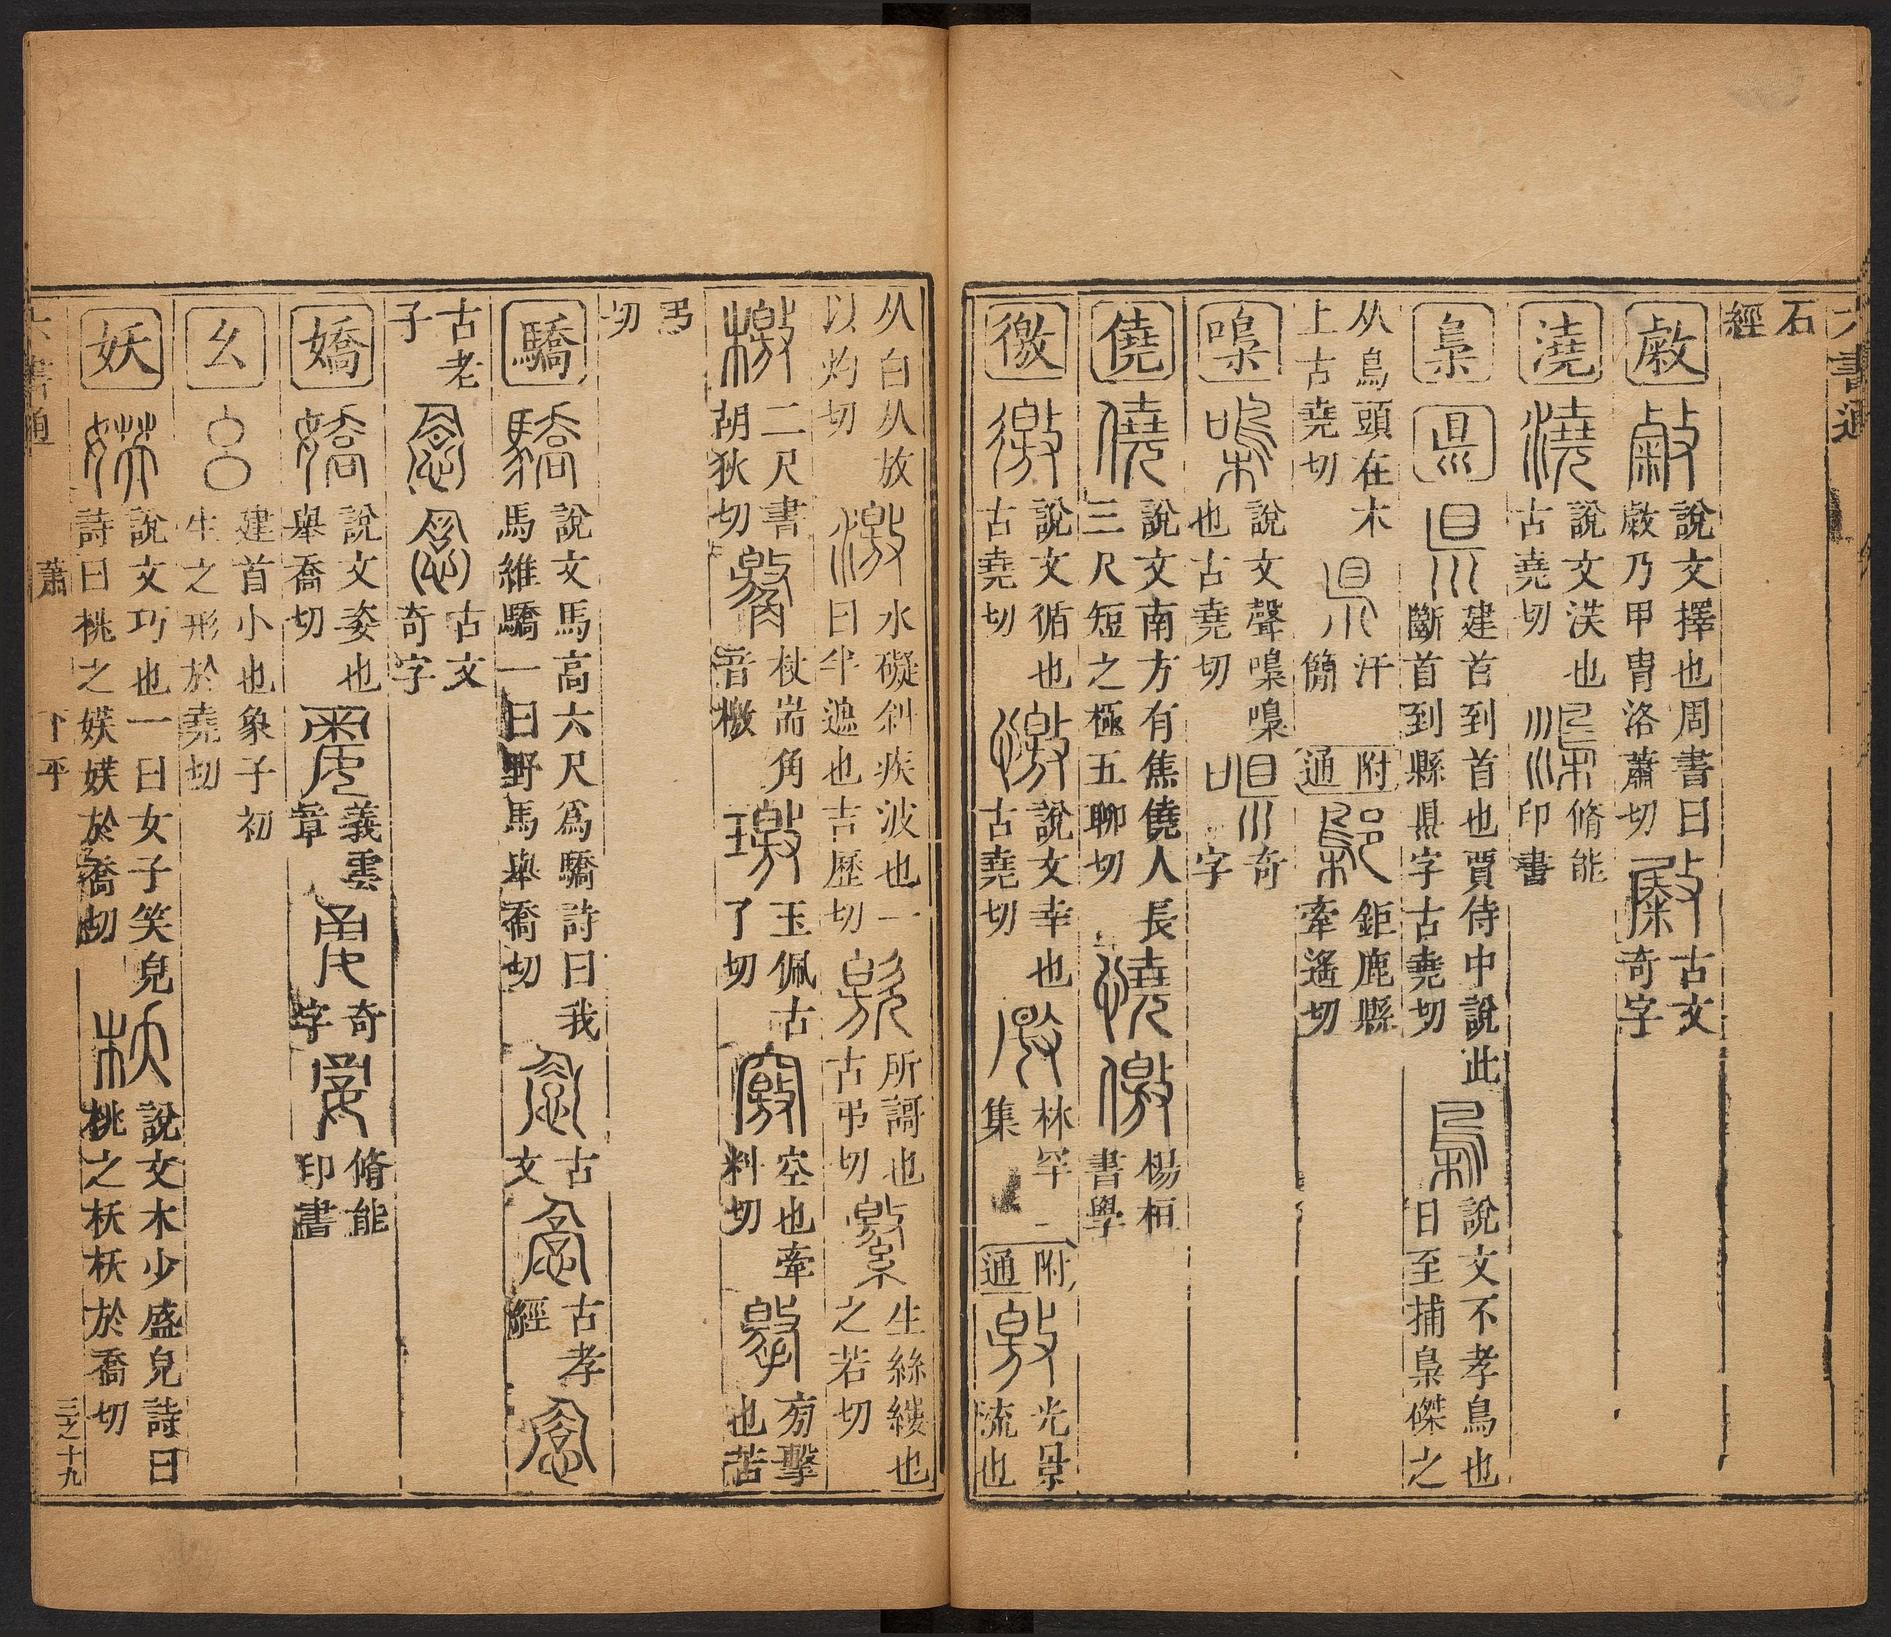 六書通
石
經
敹 說文擇也周書曰
敹乃甲冑洛蕭切 古文
奇字
澆 說文沃也
古堯切 脩能
印書
梟 𥄉 建首到首也賈侍中說此
斷首到縣𥄉字古堯切 說文不孝鳥也
日至捕梟磔之
从鳥頭在木
上古堯切 汗
簡 附
通 鉅鹿縣
牽遙切
嘄 說文聲嘄嘄
也古堯切 奇
字
僥 說文南方有焦僥人長
三尺短之極五聊切 楊桓
書學
徼 說文循也
古堯切 說文幸也
古堯切 林罕
集 附
通 光景
流也
从白从放
以灼切 水礙斜疾波也一
曰半遮也吉歷切 所謌也
古弔切 生絲縷也
之若切
檄 二尺書
胡狄切 杖耑角
音檄 玉佩古
了切 空也牽
料切 旁擊
也苦
弔
切
驕 說文馬高六尺爲驕詩曰我
馬維驕一曰野馬舉喬切 古
文 古孝
經
古老
子 古文
奇字
嬌 說文姿也
舉喬切 義雲
章 奇
字 脩能
印書
幺 建首小也象子初
生之形於堯切
妖 說文巧也一曰女子笑皃
詩曰桃之媄媄於喬切 說文木少盛皃詩曰
桃之枖枖於喬切
六書通 蕭 下平 三之十九